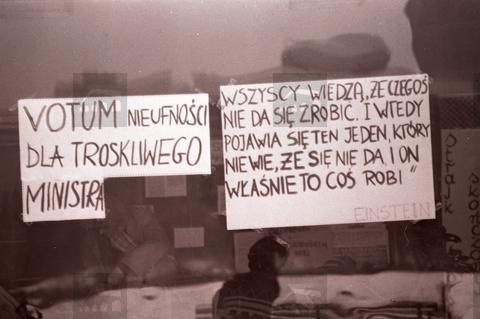 VOTUM NIEUFNOŚCI
DLA TROSKLIWEGO
MINISTRA
WSZYSCY WIEDZĄ, ŻE CZEGOŚ
NIE DA SIĘ ZROBIĆ. I WTEDY
POJAWIA SIĘ TEN JEDEN, KTÓRY
NIE WIE, ŻE SIĘ NIE DA, I ON
WŁAŚNIE TO COŚ ROBI"
EINSTEIN